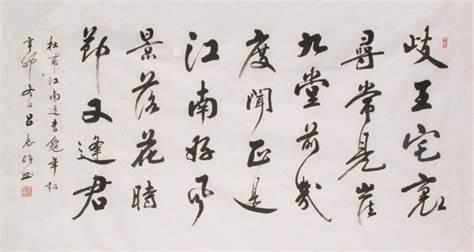 岐王宅裏
尋常見崔
九堂前幾
度聞正是
江南好風
景落花時
節又逢君
杜甫江南逢李龜年詩
辛卯冬日呂志書